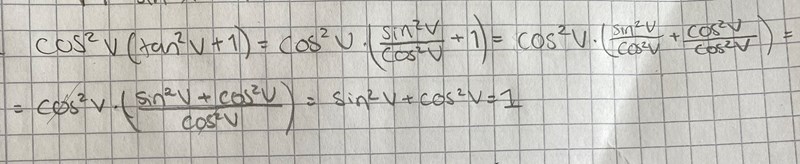 cos²v(tan²v+1) = cos²v·(sin²v/cos²v + 1) = cos²v·(sin²v/cos²v + cos²v/cos²v) =
= cos²v·((sin²v + cos²v)/cos²v) = sin²v + cos²v = 1